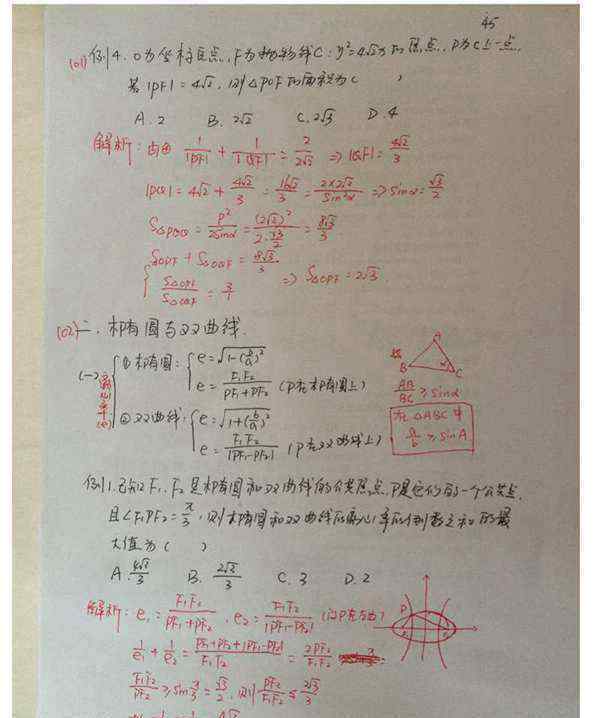 45
(01) 例4. O为坐标原点, F为抛物线C: y²=4√2x的焦点, P为C上一点,
若|PF|=4√2, 则△POF的面积为( )
A. 2 B. 2√2 C. 2√3 D. 4
解析: 由 1/|PF| + 1/|QF| = 2/2√2 ⇒ |QF| = 4√2/3
|PQ| = 4√2 + 4√2/3 = 16√2/3 = 2×2√2/sin²α ⇒ sinα = √3/2
S△POQ = P²/2sinα = (2√2)²/2·√3/2 = 8√3/3
{ S△OPF + S△OQF = 8√3/3
S△OPF/S△OQF = 3/1 ⇒ S△OPF = 2√3
(02) 二、椭圆与双曲线.
(一) 离心率(e)
① 椭圆: { e = √1-(b/a)²
e = F₁F₂/PF₁+PF₂ (P在椭圆上)
② 双曲线: { e = √1+(b/a)²
e = F₁F₂/|PF₁-PF₂| (P在双曲线上)
A
B α C
AB/BC ≥ sinα
在△ABC中
a/b ≥ sinA
例1. 已知F₁、F₂是椭圆和双曲线的公共焦点, P是它们的一个公共点,
且∠F₁PF₂ = π/3, 则椭圆和双曲线的离心率的倒数之和的最
大值为( )
A. 4√3/3 B. 2√3/3 C. 3 D. 2
解析: e₁ = F₁F₂/PF₁+PF₂, e₂ = F₁F₂/|PF₁-PF₂| (设P在左)
P
1/e₁ + 1/e₂ = PF₁+PF₂+|PF₁-PF₂|/F₁F₂ = 2PF₂/F₁F₂
F₁F₂/PF₂ ≥ sin π/3 = √3/2, 则 PF₂/F₁F₂ ≤ 2√3/3